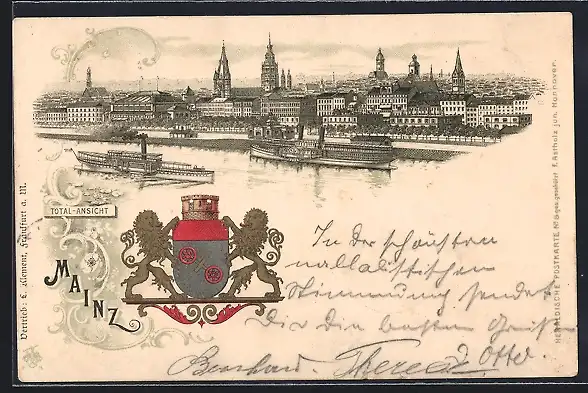 TOTAL-ANSICHT
MAINZ
In der schönsten
Stimmung sendet
Dir die besten
Bernhard. Therese. Otto.
Vertrieb: C. Klement, Frankfurt a. M.
HERALDISCHE POSTKARTE No ges. geschützt F. Astholz jun. Hannover.